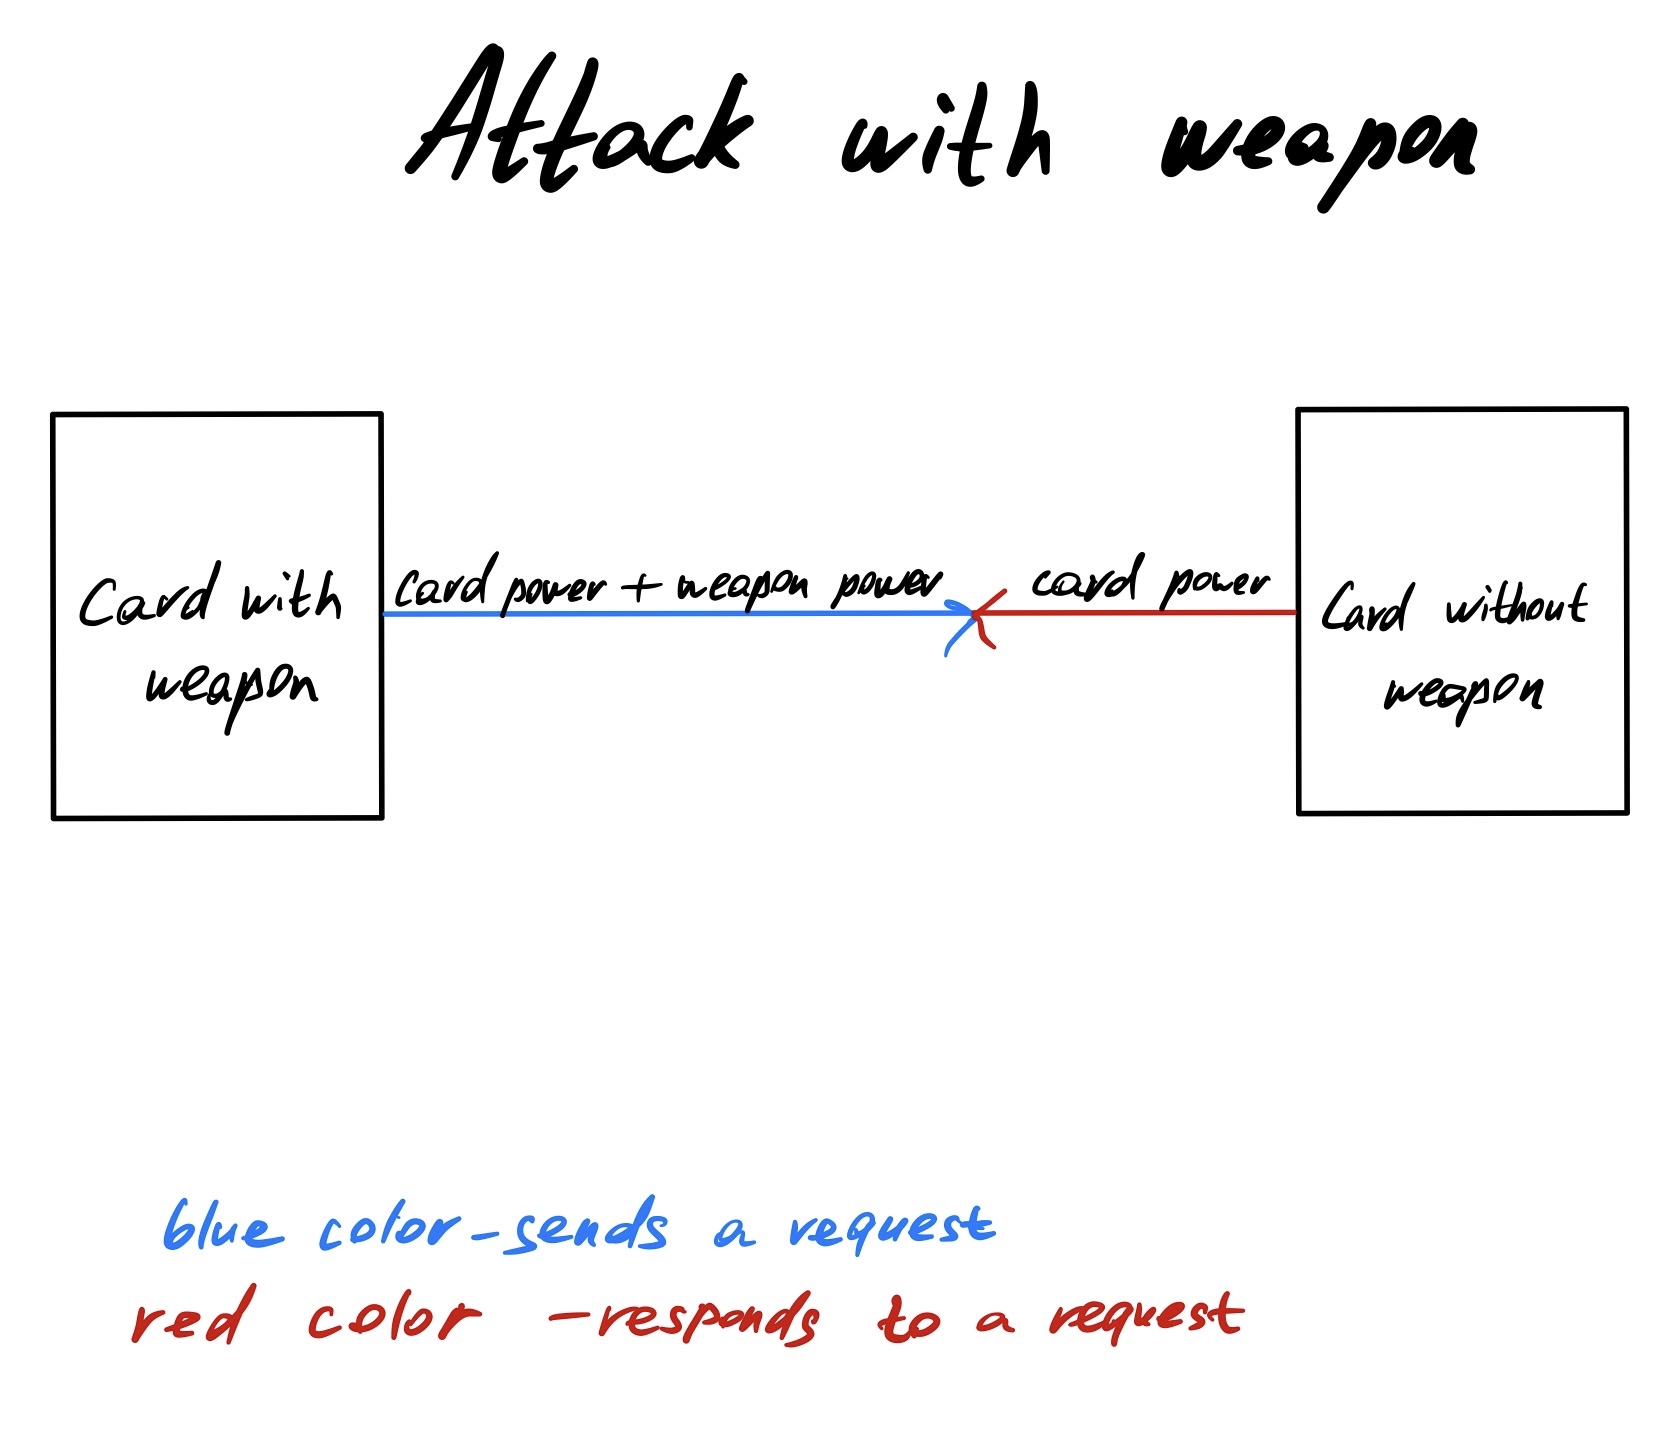 Attack with weapon
Card with
weapon
card power + weapon power
card power
Card without
weapon
blue color - sends a request
red color - responds to a request